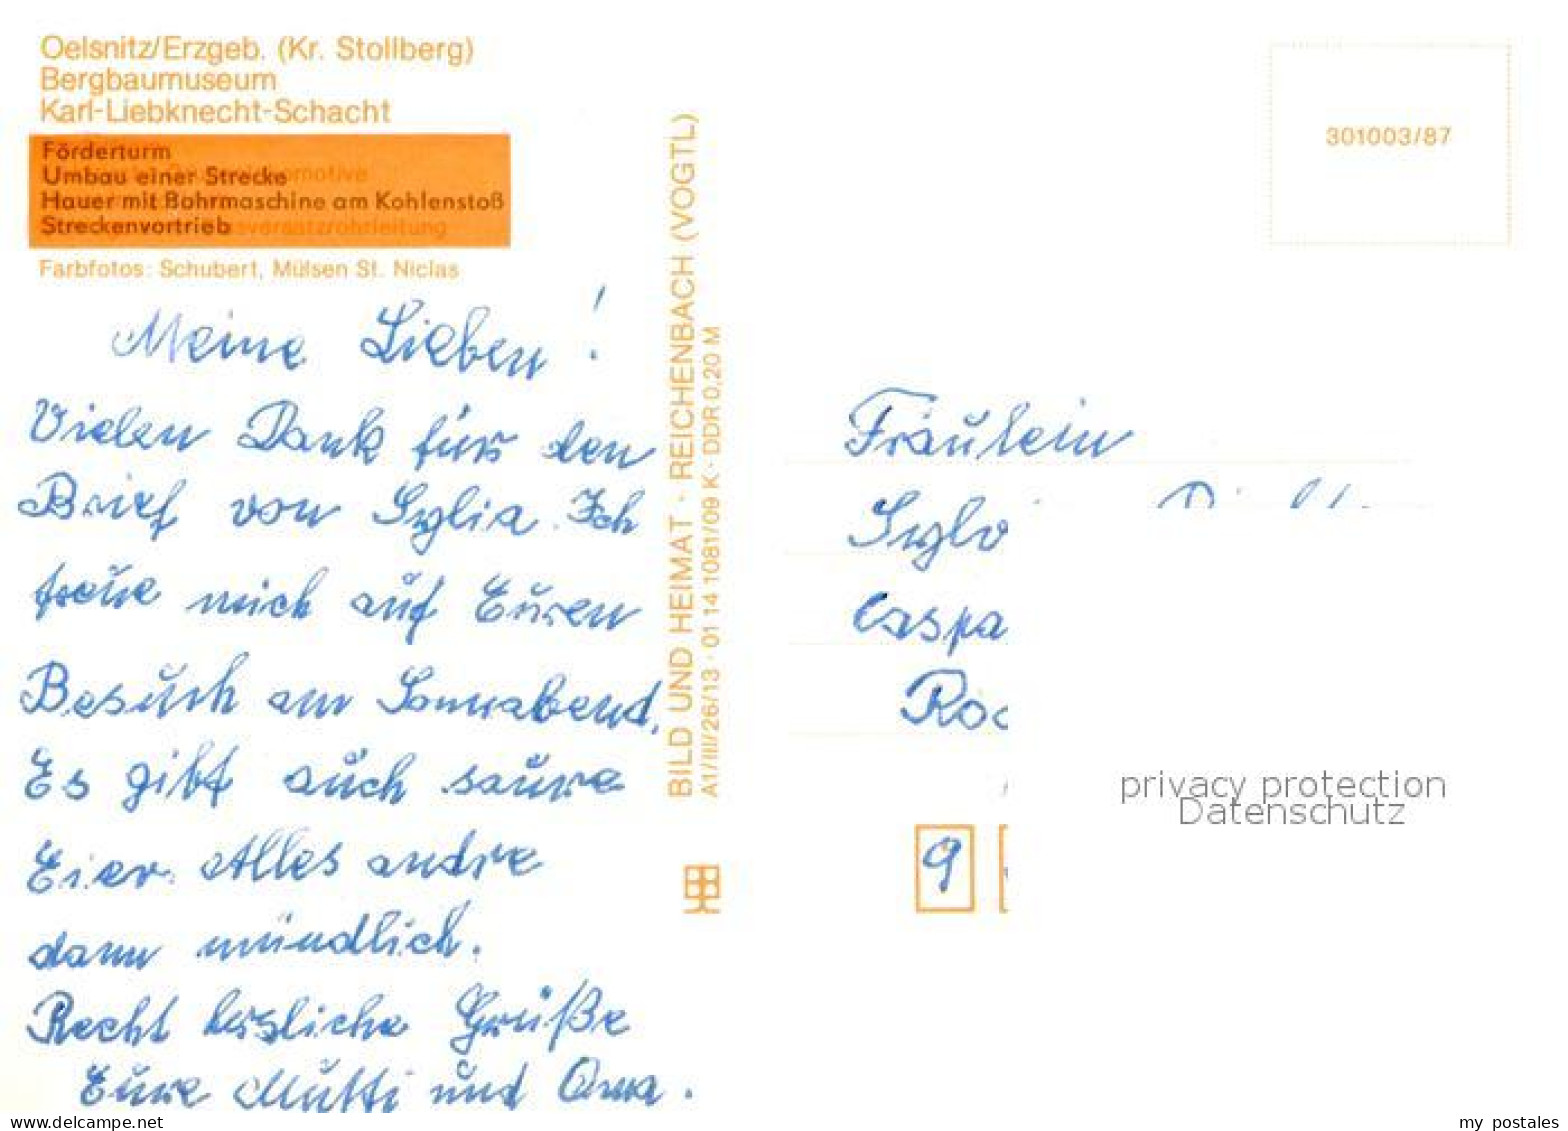 Oelsnitz/Erzgeb. (Kr. Stollberg)
Bergbaumuseum
Karl-Liebknecht-Schacht
Förderturm
Umbau einer Strecke
Hauer mit Bohrmaschine am Kohlenstoß
Streckenvortrieb
Farbfotos: Schubert, Mülsen St. Niclas
Meine Lieben!
Vielen Dank für den
Brief von Sylvia. Ich
freue mich auf Euren
Besuch am Sonnabend.
Es gibt auch saure
Eier. Alles andre
dann mündlich.
Recht herzliche Grüße
Eure Mutti und Oma.
BILD UND HEIMAT · REICHENBACH (VOGTL)
A1/III/26/13 · 01 14 1081/09 K · DDR 0,20 M
301003/87
Fräulein
Sylv
Caspa
Roc
9
privacy protection
Datenschutz
my postales
delcampe.net